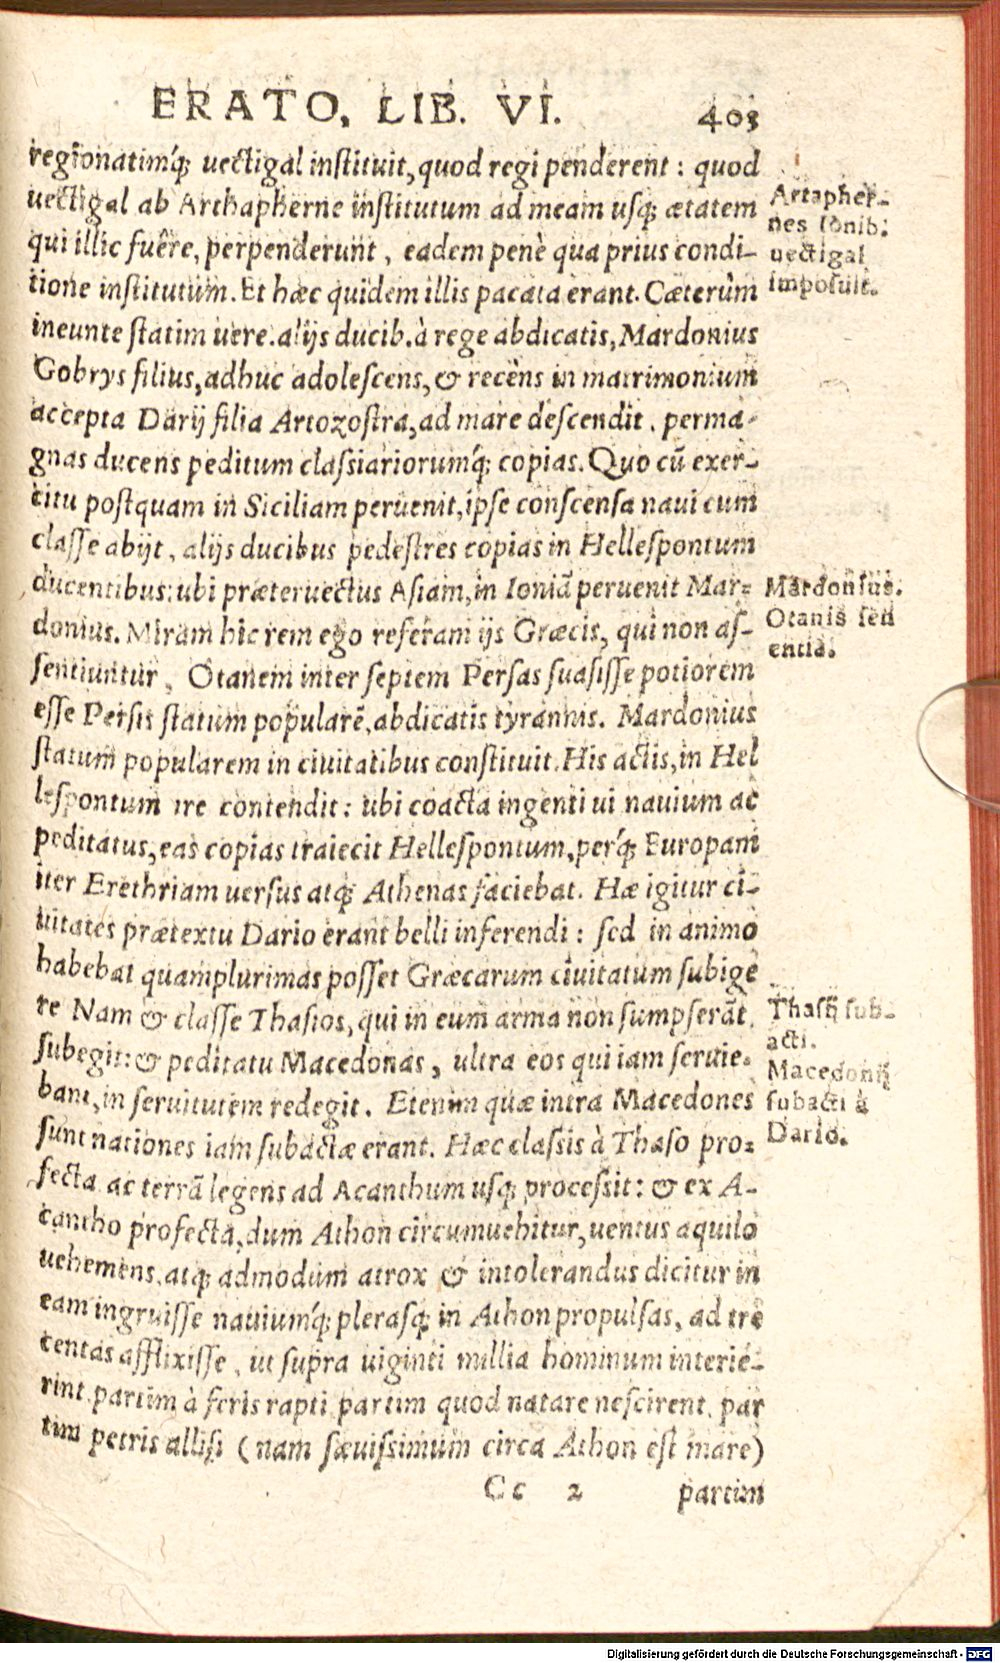 ERATO, LIB. VI. 403
regionatimq́; uectigal inſtituit, quod regi penderent : quod
uectigal ab Arthapherne inſtitutum ad meam uſq; ætatem
qui illic fuêre, perpenderunt, eadem penè qua prius condi-
tione inſtitutum. Et hæc quidem illis pacata erant. Cæterùm
ineunte ſtatim uere. alijs ducib. à rege abdicatis, Mardonius
Gobrys filius, adhuc adoleſcens, & recèns in matrimonium
accepta Darij filia Artozoſtra, ad mare deſcendit, perma-
gnas ducens peditum claſsiariorumq́; copias. Quo cũ exer-
citu poſtquam in Siciliam peruenit, ipſe conſcenſa naui cum
claſſe abijt, alijs ducibus pedeſtres copias in Helleſpontum
ducentibus: ubi præteruectus Aſiam, in Ioniã peruenit Mar-
donius. Miram hic rem ego referam ijs Græcis, qui non aſ-
ſentiuntur, Otanem inter ſeptem Perſas ſuaſiſſe potiorem
eſſe Perſis ſtatum popularẽ, abdicatis tyrannis. Mardonius
ſtatum popularem in ciuitatibus conſtituit. His actis, in Hel
leſpontum ire contendit : ubi coacta ingenti ui nauium ac
peditatus, eas copias traiecit Helleſpontum, perq́; Europam
iter Erethriam uerſus atq; Athenas faciebat. Hæ igitur ci-
uitates prætextu Dario erant belli inferendi : ſed in animo
habebat quamplurimas poſſet Græcarum ciuitatum ſubige
re Nam & claſſe Thaſios, qui in eum arma non ſumpſerãt,
ſubegit: & peditatu Macedonas, ultra eos qui iam ſeruie-
bant, in ſeruitutem redegit. Etenim quæ intra Macedones
ſunt nationes iam ſubactæ erant. Hæc claſsis à Thaſo pro-
fecta, ac terrã legens ad Acanthum uſq; proceſsit : & ex A-
cantho profecta, dum Athon circumuehitur, uentus aquilo
uehemens, atq; admodum atrox & intolerandus dicitur in
eam ingruiſſe nauiumq́; pleraſq; in Athon propulſas, ad tre
centas afflixiſſe, ut ſupra uiginti millia hominum interie-
rint, partim à feris rapti, partim quod natare neſcirent, par
tim petris alliſi (nam ſæuiſsimum circa Athon eſt mare)
Cc 2 partim
Artapher-
nes Ionib;
uectigal
impoſuit.
Mardonius.
Otanis ſen
entia.
Thaſij ſub-
acti.
Macedonij
ſubacti à
Dario.
Digitalisierung gefördert durch die Deutsche Forschungsgemeinschaft - DFG